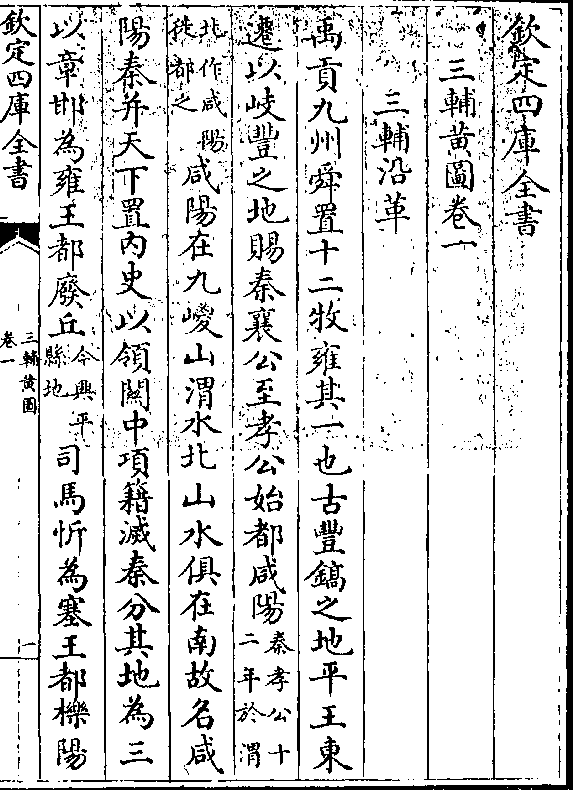 欽定四庫全書
三輔黃圖卷一
三輔沿革
禹貢九州舜置十二牧雍其一也古豐鎬之地平王東
遷以岐豐之地賜秦襄公至孝公始都咸陽秦孝公十二年於渭
北作咸陽徙都之咸陽在九嵕山渭水北山水俱在南故名咸
陽秦并天下置內史以領關中項籍滅秦分其地為三
以章邯為雍王都廢丘今興平縣地司馬忻為塞王都櫟陽
欽定四庫全書
三輔黃圖
卷一
一